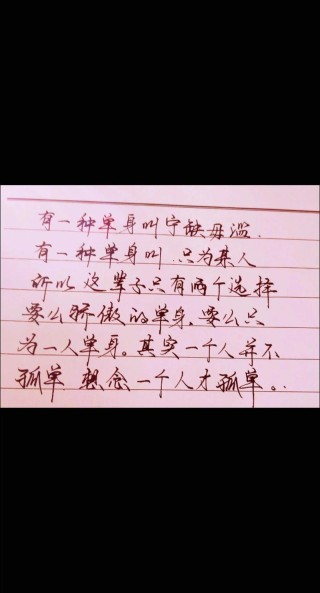 有一种单身叫宁缺毋滥.
有一种单身叫.只为某人
所以这辈子只有两个选择
要么骄傲的单身.要么只
为一人单身。其实一个人并不
孤单.想念一个人才孤单。..